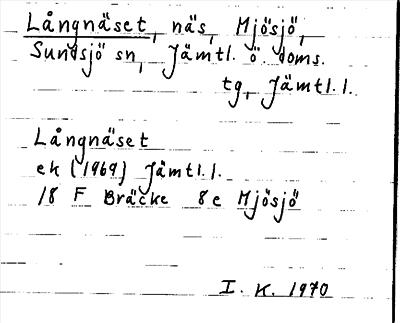 Långnäset, näs, Mjösjö,
Sundsjö sn, Jämtl. ö. doms.
tg, Jämtl.l.
Långnäset
ek (1969) Jämtl.l.
18 F Bräcke 8e Mjösjö
I. K. 1970